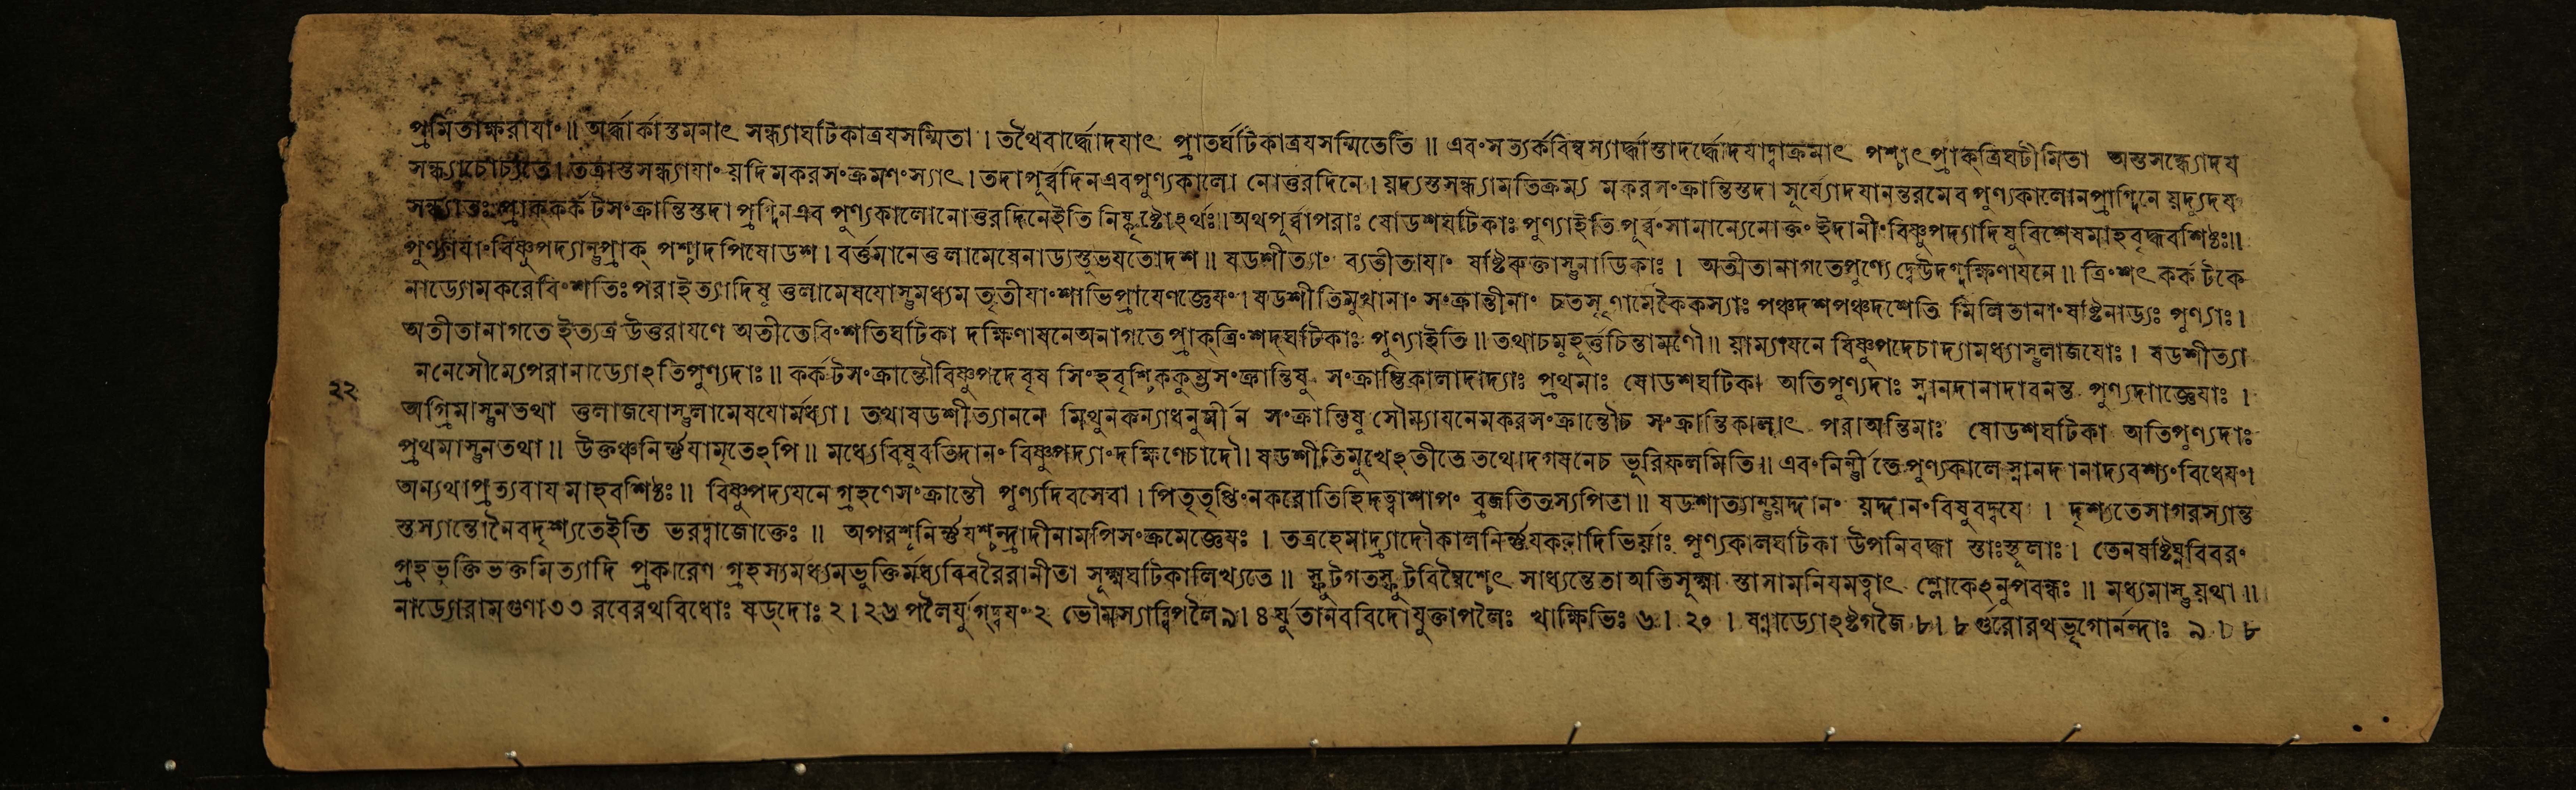 প্রমিতাক্ষরাযাং॥ অর্দ্ধার্কাস্তমনাৎ সন্ধ্যাঘটিকাত্রযসম্মিতা। তথৈবার্দ্ধোদযাৎ প্রাতর্ঘটিকাত্রযসম্মিতেতি॥ এবংসত্যর্কবিম্বস্যার্দ্ধাস্তাদর্দ্ধোদযাদ্বাক্রমাৎ পশ্চাৎপ্রাক্ত্রিঘটীমিতা অস্তসন্ধ্যোদয
সন্ধ্যাচোচ্যতে। তত্রাস্তসন্ধ্যাযাং য়দিমকরসংক্রমণংস্যাৎ। তদাপূর্ব্বদিনএবপুণ্যকালো নোত্তরদিনে। য়দ্যস্তসন্ধ্যামতিক্রম্য মকরসংক্রান্তিস্তদা সূর্য্যোদযানন্তরমেব পুণ্যকালোনপ্রাগ্দিনে য়দ্যুদয
সন্ধ্যাতঃ প্রাক্কর্কটসংক্রান্তিস্তদা প্রাগ্দিনএব পুণ্যকালোনোত্তরদিনেইতি নিষ্কৃষ্টোঽর্থঃ। অথপূর্ব্বাপরাঃ ষোডশঘটিকাঃ পুণ্যাইতি পূর্ব্বংসামান্যেনোক্তং ইদানীংবিষ্ণুপদ্যাদিষুবিশেষমাহবৃদ্ধবশিষ্ঠঃ॥
পুণ্যাযাংবিষ্ণুপদ্যান্তুপ্রাক্ পশ্চাদপিষোডশ। বর্ত্তমানেতুলামেষেনাড্যস্তূভযতোদশ॥ ষডশীত্যাং ব্যতীতাযাং ষষ্টিরুক্তাস্তুনাডিকাঃ। অতীতানাগতেপুণ্যেদ্বেউদগ্দক্ষিণাযনে॥ ত্রিংশৎ কর্কটকে
নাড্যোমকরেবিংশতিঃপরাইত্যাদিষু তুলামেষযোস্তুমধ্যম তৃতীযাংশাভিপ্রাযেণজ্ঞেযং। ষডশীতিমুখানাং সংক্রান্তীনাং চতসৃণামেকৈকস্যাঃ পঞ্চদশপঞ্চদশেতি মিলিতানাংষষ্টিনাড্যঃ পুণ্যাঃ।
অতীতানাগতে ইত্যত্র উত্তরাযণে অতীতেবিংশতিঘটিকা দক্ষিণাযনেঅনাগতে প্রাক্ত্রিংশদ্ঘটিকাঃ পুণ্যাইতি॥ তথাচমুহূর্ত্তচিন্তামণৌ॥ য়াম্যাযনে বিষ্ণুপদেচাদ্যামধ্যাস্তুলাজযোঃ। ষডশীত্যা
২২ ননেসৌম্যেপরানাড্যোঽতিপুণ্যদাঃ॥ কর্কটসংক্রান্তৌবিষ্ণুপদেবৃষ সিংহবৃশ্চিককুম্ভসংক্রান্তিষু সংক্রান্তিকালাদাদ্যাঃ প্রথমাঃ ষোডশঘটিকা অতিপুণ্যদাঃ স্নানদানাদাবনন্ত পুণ্যদাজ্ঞেযাঃ।
অগ্রিমাস্তুনতথা তুলাজযোস্তুলামেষযোর্মধ্যা। তথাষডশীত্যাননে মিথুনকন্যাধনুর্মীন সংক্রান্তিষু সৌম্যাযনেমকরসংক্রান্তৌচ সংক্রান্তিকালাৎ পরাঅন্তিমাঃ ষোডশঘটিকা অতিপুণ্যদাঃ
প্রথমাস্তুনতথা॥ উক্তঞ্চনির্ণ্ণযামৃতেঽপি॥ মধ্যেবিষুবতিদানং বিষ্ণুপদ্যাংদক্ষিণেচাদৌ। ষডশীতিমুখেঽতীতে তথোদগযনেচ ভূরিফলমিতি॥ এবংনির্ন্নীতে পুণ্যকালে স্নানদানাদ্যবশ্যংবিধেযং।
অন্যথাপ্রত্যবাযমাহবশিষ্ঠঃ॥ বিষ্ণুপদ্যযনে গ্রহণেসংক্রান্তৌ পুণ্যদিবসেবা। পিতৃতৃপ্তিংনকরোতিহিদত্বাশাপং ব্রজতিতস্যপিতা॥ ষডশীত্যান্তুয়দ্দানং য়দ্দানংবিষুবদ্বযে। দৃশ্যতেসাগরস্যান্ত
স্তস্যান্তোনৈবদৃশ্যতেইতি ভরদ্বাজোক্তেঃ॥ অপরশ্চনির্ণ্ণযশ্চন্দ্রাদীনামপিসংক্রমেজ্ঞেযঃ। তত্রহেমাদ্র্যাদৌকালনির্ণ্ণযকরাদিভির্য়াঃ পুণ্যকালঘটিকা উপনিবদ্ধা স্তাঃস্থূলাঃ। তেনষষ্টিঘ্নবিবরং
গ্রহভুক্তিভক্তমিত্যাদি প্রকারেণ গ্রহস্যমধ্যমভুক্তির্মধ্যবিবরৈরানীতা সূক্ষ্মঘটিকালিখ্যতে॥ স্ফুটগতস্ফুটবিম্বৈশ্চেৎ সাধ্যন্তেতাঅতিসূক্ষ্মা স্তাসামনিযমত্বাৎ শ্লোকেঽনুপবন্ধঃ॥ মধ্যমাস্তুয়থা॥
নাড্যোরামগুণা৩৩ রবেরথবিধোঃ ষড্দোঃ ২।২৬ পলৈর্যুগ্দ্বযং ২ ভৌমস্যাব্ধিপলৈ ৯।৪ র্যুতানববিদোযুক্তাপলৈঃ খাক্ষিভিঃ ৬।২০। ষন্নাড্যোঽষ্টগজৈ ৮।৮ র্গুরোরথভৃগোর্নন্দাঃ ৯।৮